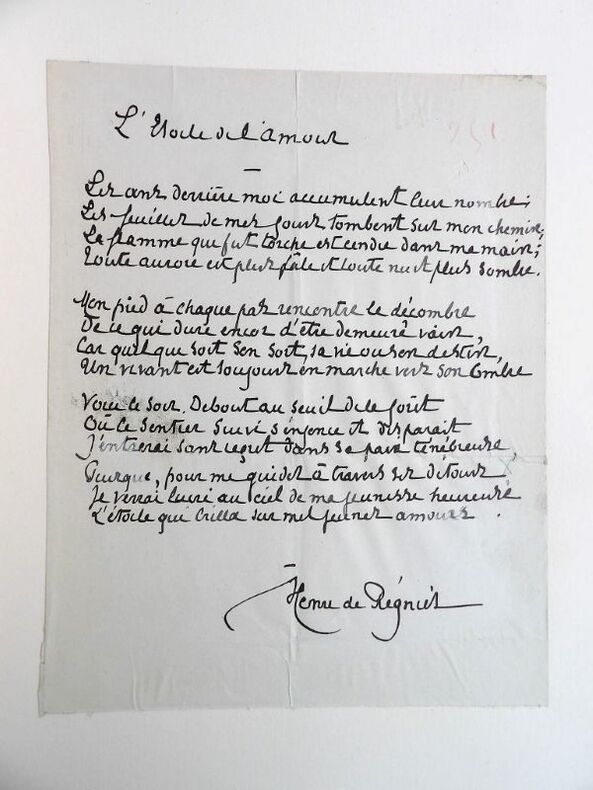 L'Etoile de l'amour
Les ans derrière moi accumulent leur nombre;
Les feuilles de mes jours tombent sur mon chemin,
La flamme qui fut torche est cendre dans ma main;
Toute aurore est plus pâle et toute nuit plus sombre.
Mon pied à chaque pas rencontre le décombre
De ce qui dure encor d'être demeuré vain,
Car quel que soit son sort, sa vie ou son destin,
Un vivant est toujours en marche vers son Ombre
Voici le soir. Debout au seuil de la forêt
Où le sentier suivi s'enfonce et disparait
J'entrerai sans regret dans sa paix ténébreuse,
Puisque, pour me guider à travers ses détours
Je verrai luire au ciel de ma jeunesse heureuse
L'étoile qui brilla sur mes jeunes amours.
Henri de Régnier